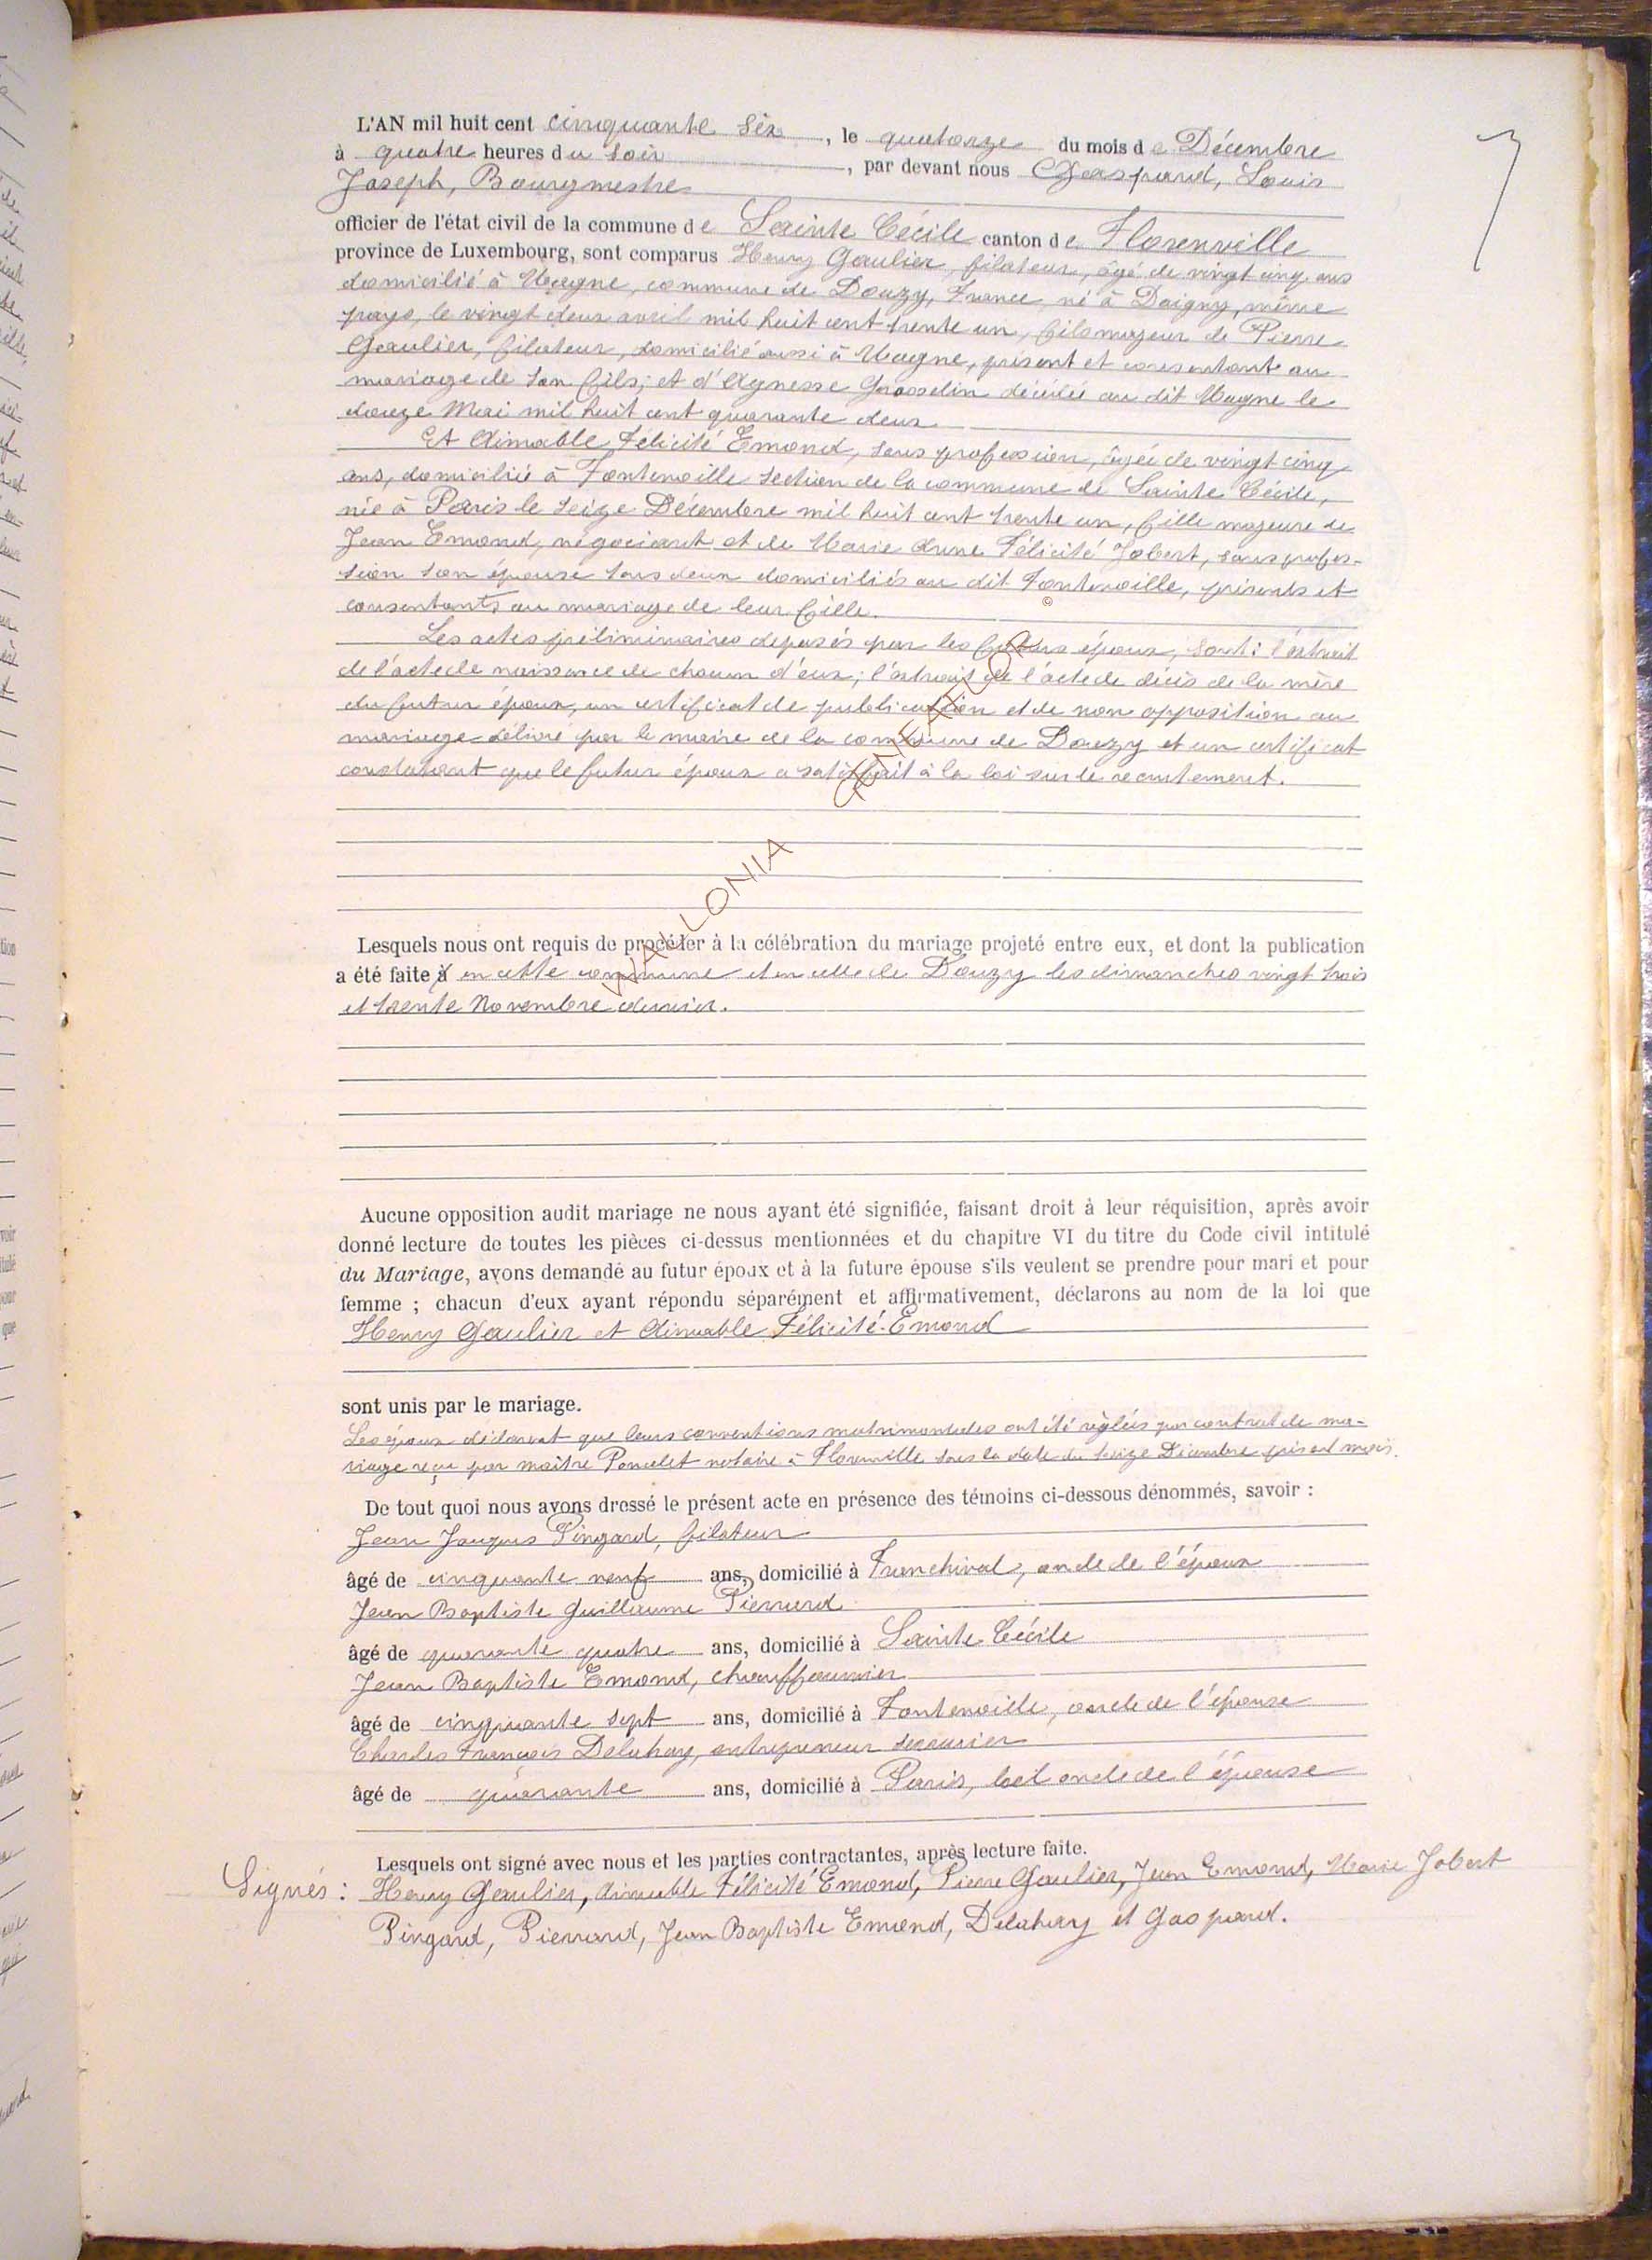 L'AN mil huit cent cinquante six, le quatorze du mois de Décembre
à quatre heures du soir, par devant nous Gaspard, Louis
Joseph, Bourgmestre
officier de l'état civil de la commune de Sainte Cécile canton de Florenville
province de Luxembourg, sont comparus Henry Gaulier, filateur, âgé de vingt cinq ans
domicilié à Magne, commune de Douzy, France, né à Daigny, même
pays, le vingt deux avril mil huit cent trente un, fils majeur de Pierre
Gaulier, filateur, domicilié aussi à Magne, présent et consentant au
mariage de son fils; et d'Agnesse Gosselin décédée au dit Magne le
douze Mai mil huit cent quarante deux
Et Aimable Félicité Emond, sans profession, âgée de vingt cinq
ans, domiciliée à Fontenoille section de la commune de Sainte Cécile,
née à Paris le seize Décembre mil huit cent trente un, fille majeure de
Jean Emond, négociant et de Marie Anne Félicité Jobert, sans profes-
sion son épouse tous deux domiciliés au dit Fontenoille, présents et
consentants au mariage de leur fille.
Les actes préliminaires déposés par les futurs époux, sont: l'extrait
de l'acte de naissance de chacun d'eux; l'extrait de l'acte de décès de la mère
du futur époux, un certificat de publication et de non opposition au
mariage délivré par le maire de la commune de Douzy et un certificat
constatant que le futur époux a satisfait à la loi sur le recrutement.
WALLONIA
©
Lesquels nous ont requis de procéder à la célébration du mariage projeté entre eux, et dont la publication
a été faite à en cette commune et en celle de Douzy les dimanches vingt trois
et trente Novembre dernier.
Aucune opposition audit mariage ne nous ayant été signifiée, faisant droit à leur réquisition, après avoir
donné lecture de toutes les pièces ci-dessus mentionnées et du chapitre VI du titre du Code civil intitulé
du Mariage, avons demandé au futur époux et à la future épouse s'ils veulent se prendre pour mari et pour
femme ; chacun d'eux ayant répondu séparément et affirmativement, déclarons au nom de la loi que
Henry Gaulier et Aimable Félicité Emond
sont unis par le mariage.
Les époux déclarent que leurs conventions matrimoniales ont été réglées par contrat de ma-
riage reçu par maître Poncelet notaire à Florenville sous la date du treize Décembre présent mois.
De tout quoi nous avons dressé le présent acte en présence des témoins ci-dessous dénommés, savoir :
Jean Jacques Pingard, filateur
âgé de cinquante neuf ans, domicilié à Franchival, oncle de l'époux
Jean Baptiste Guillaume Pierrard
âgé de quarante quatre ans, domicilié à Sainte Cécile
Jean Baptiste Emond, chauffournier
âgé de cinquante sept ans, domicilié à Fontenoille, oncle de l'épouse
Charles François Delahay, entrepreneur
âgé de quarante ans, domicilié à Paris, bel oncle de l'épouse
Lesquels ont signé avec nous et les parties contractantes, après lecture faite.
Signés : Henry Gaulier, Aimable Félicité Emond, Pierre Gaulier, Jean Emond, Marie Jobert
Pingard, Pierrard, Jean Baptiste Emond, Delahay et Gaspard.